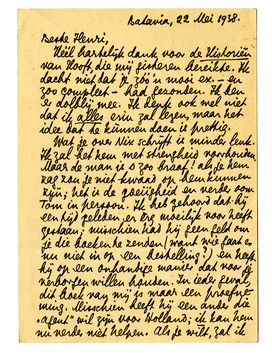 Batavia, 22 Mei 1938.
Beste Henri,
Héél hartelijk dank voor de Historiën
van Hooft, die mij gisteren bereikte. Ik
dacht niet dat je zóo'n mooi ex. – en
zoo compleet – had gezonden. Ik ben
er dolblij mee. Ik denk ook wel niet
dat ik alles erin zal lezen, maar het
idee dat te kunnen doen is prettig.
Wat je over Nix schrijft is minder leuk.
Ik zal het hem met strengheid voorhouden.
Maar de man is zoo braaf! als je hem
zag zou je niet kwaad op hem kunnen
zijn; het is de goeiigheid en verdere oom
Tom in persoon. Ik heb gehoord dat hij
een tijd geleden er erg moeilijk voor heeft
gestaan; misschien had hij geen geld om
je die boeken te zenden (want wie gaat er
nu niet in op een bestelling!) en heeft
hij op een onhandige manier dat voor je
verborgen willen houden. In ieder geval,
dit boek van mij is maar een proefne-
ming. Misschien heeft hij een ander die
"agent" wil zijn voor Holland; ik kan hem
nu verder niet helpen. Als je wilt, zal ik